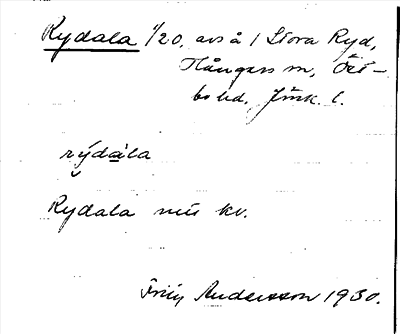 Rydala 1/20, avs å 1 Stora Ryd,
Hångers sn, Öst-
bo hd, Jönk. l.
rýdàla
Rydala mü kv.
Fritz Andersson 1930.